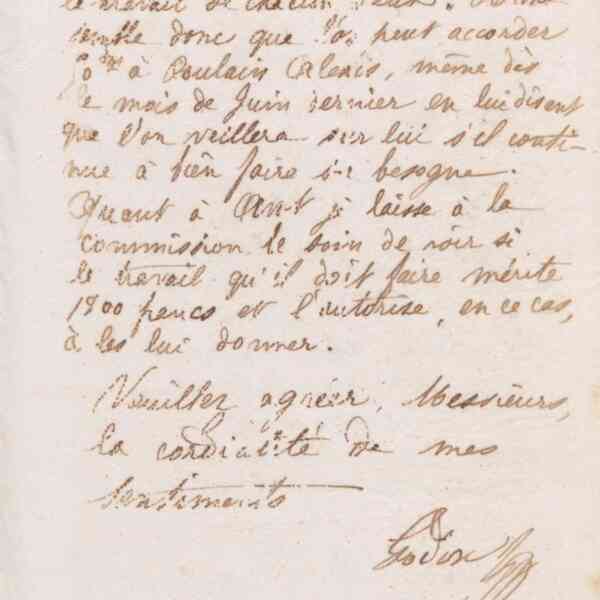 le travail de chacun d'eux. Il me
semble donc que l'on peut accorder
à Poulain Alexis, même dès
le mois de Juin dernier en lui disant
que l'on veillera sur lui s'il conti-
nue à bien faire sa besogne.
Quant à je laisse à la
commission le soin de voir si
le travail qu'il doit faire mérite
1800 francs et l'autorise, en ce cas,
à les lui donner.
Veuillez agréer, Messieurs,
la cordialité de mes
sentiments
Godin